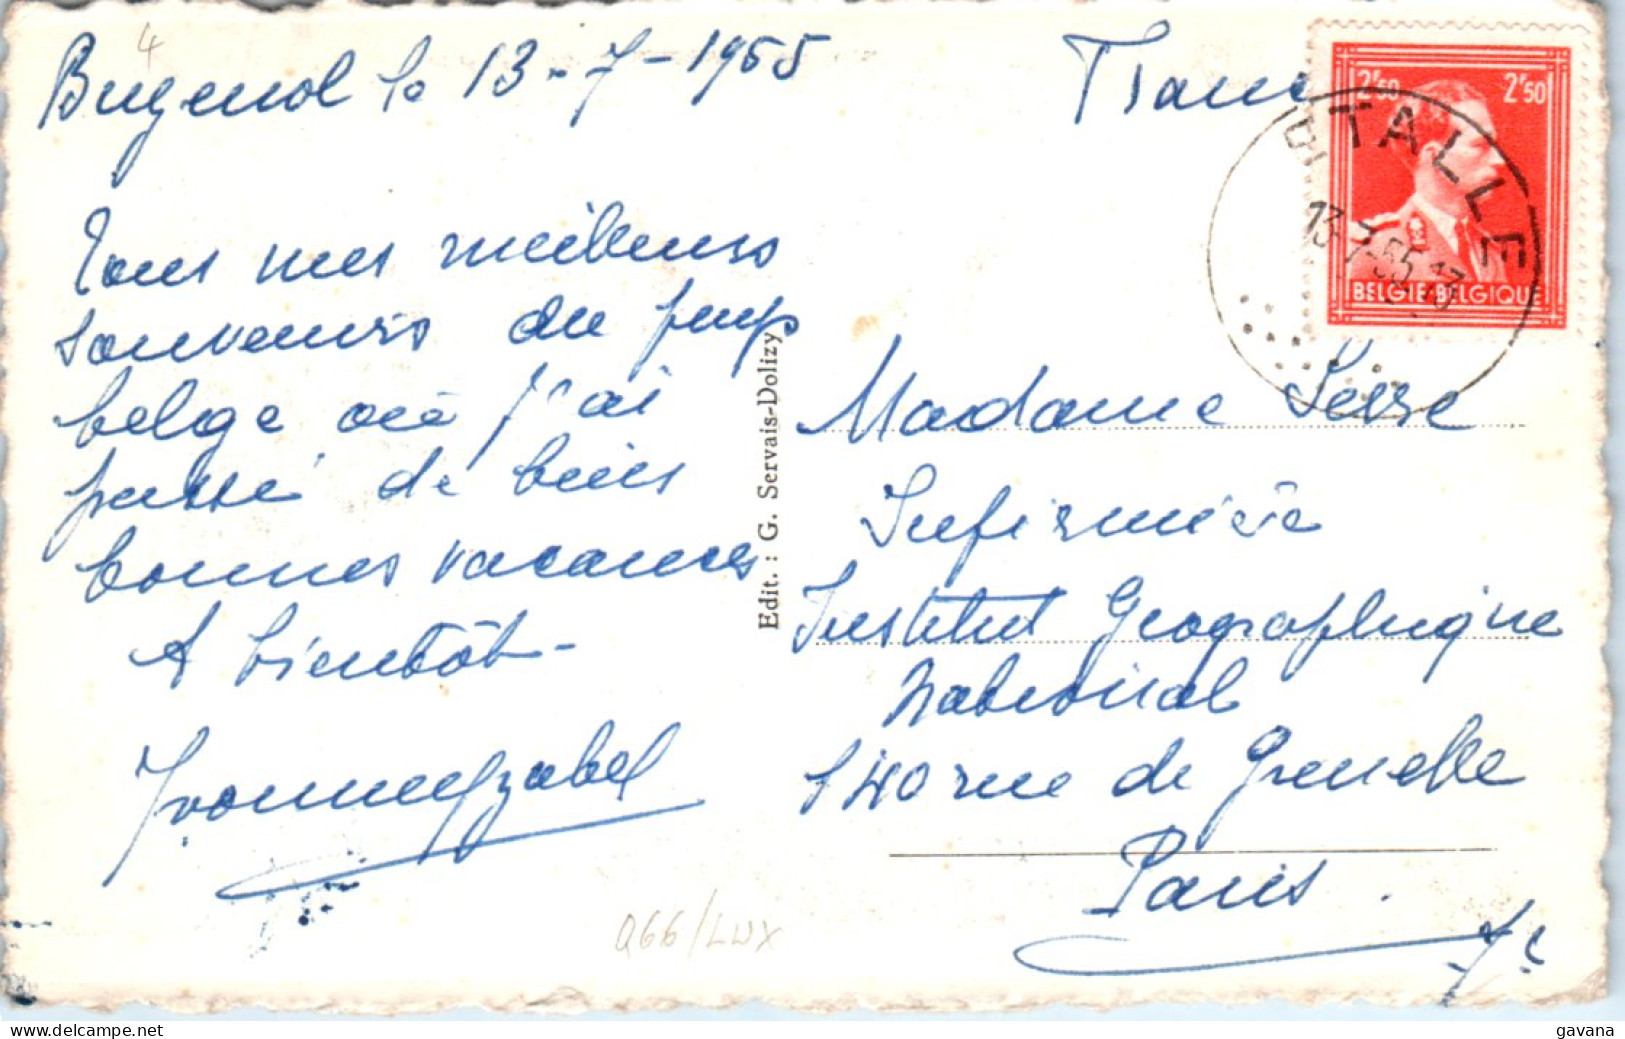 4
Buzenol le 13-7-1955
France
2F50 2F50
BELGIE-BELGIQUE
TALLE
13-7-55 13
Tous mes meilleurs
souvenirs du pays
belge où j'ai
passé de biens
bonnes vacances
A bientôt -
Yvonne Yzabel
Edit. : G. Servais-Dolizy
Madame
Infirmière
Institut Geographique
National
140 rue de Grenelle
Paris.
7e
Q66/LUX
gavana